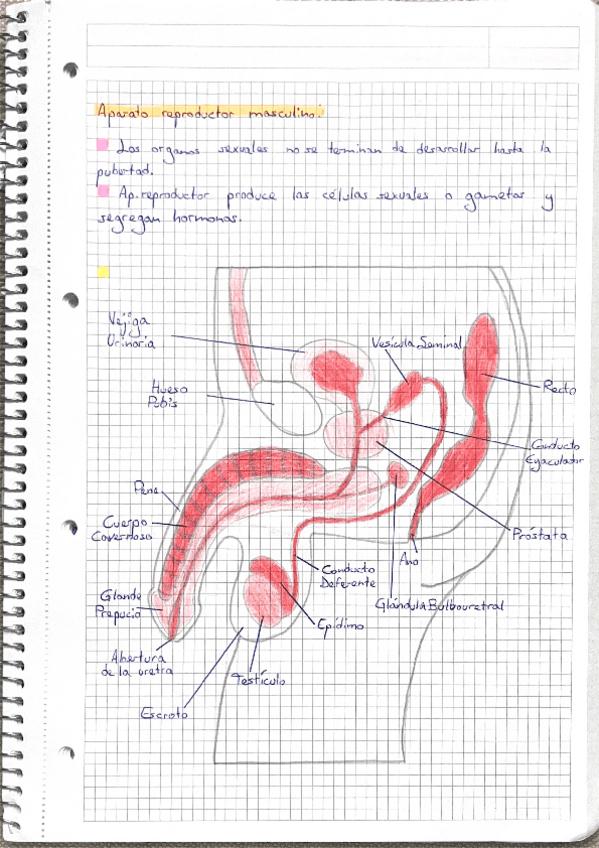 Aparato reproductor masculino:
Los organos sexuales no se terminan de desarrollar hasta la
pubertad.
Ap.reproductor produce las células sexuales o gametos y
segregan hormonas.
Vejiga
Urinaria
Vesícula Seminal
Recto
Hueso
Pubis
Conducto
Eyaculador
Pene
Cuerpo
Cavernoso
Próstata
Ano
Conducto
Deferente
Glande
Prepucio
Glándula Bulbouretral
Epídimo
Abertura
de la uretra
Testículo
Escroto